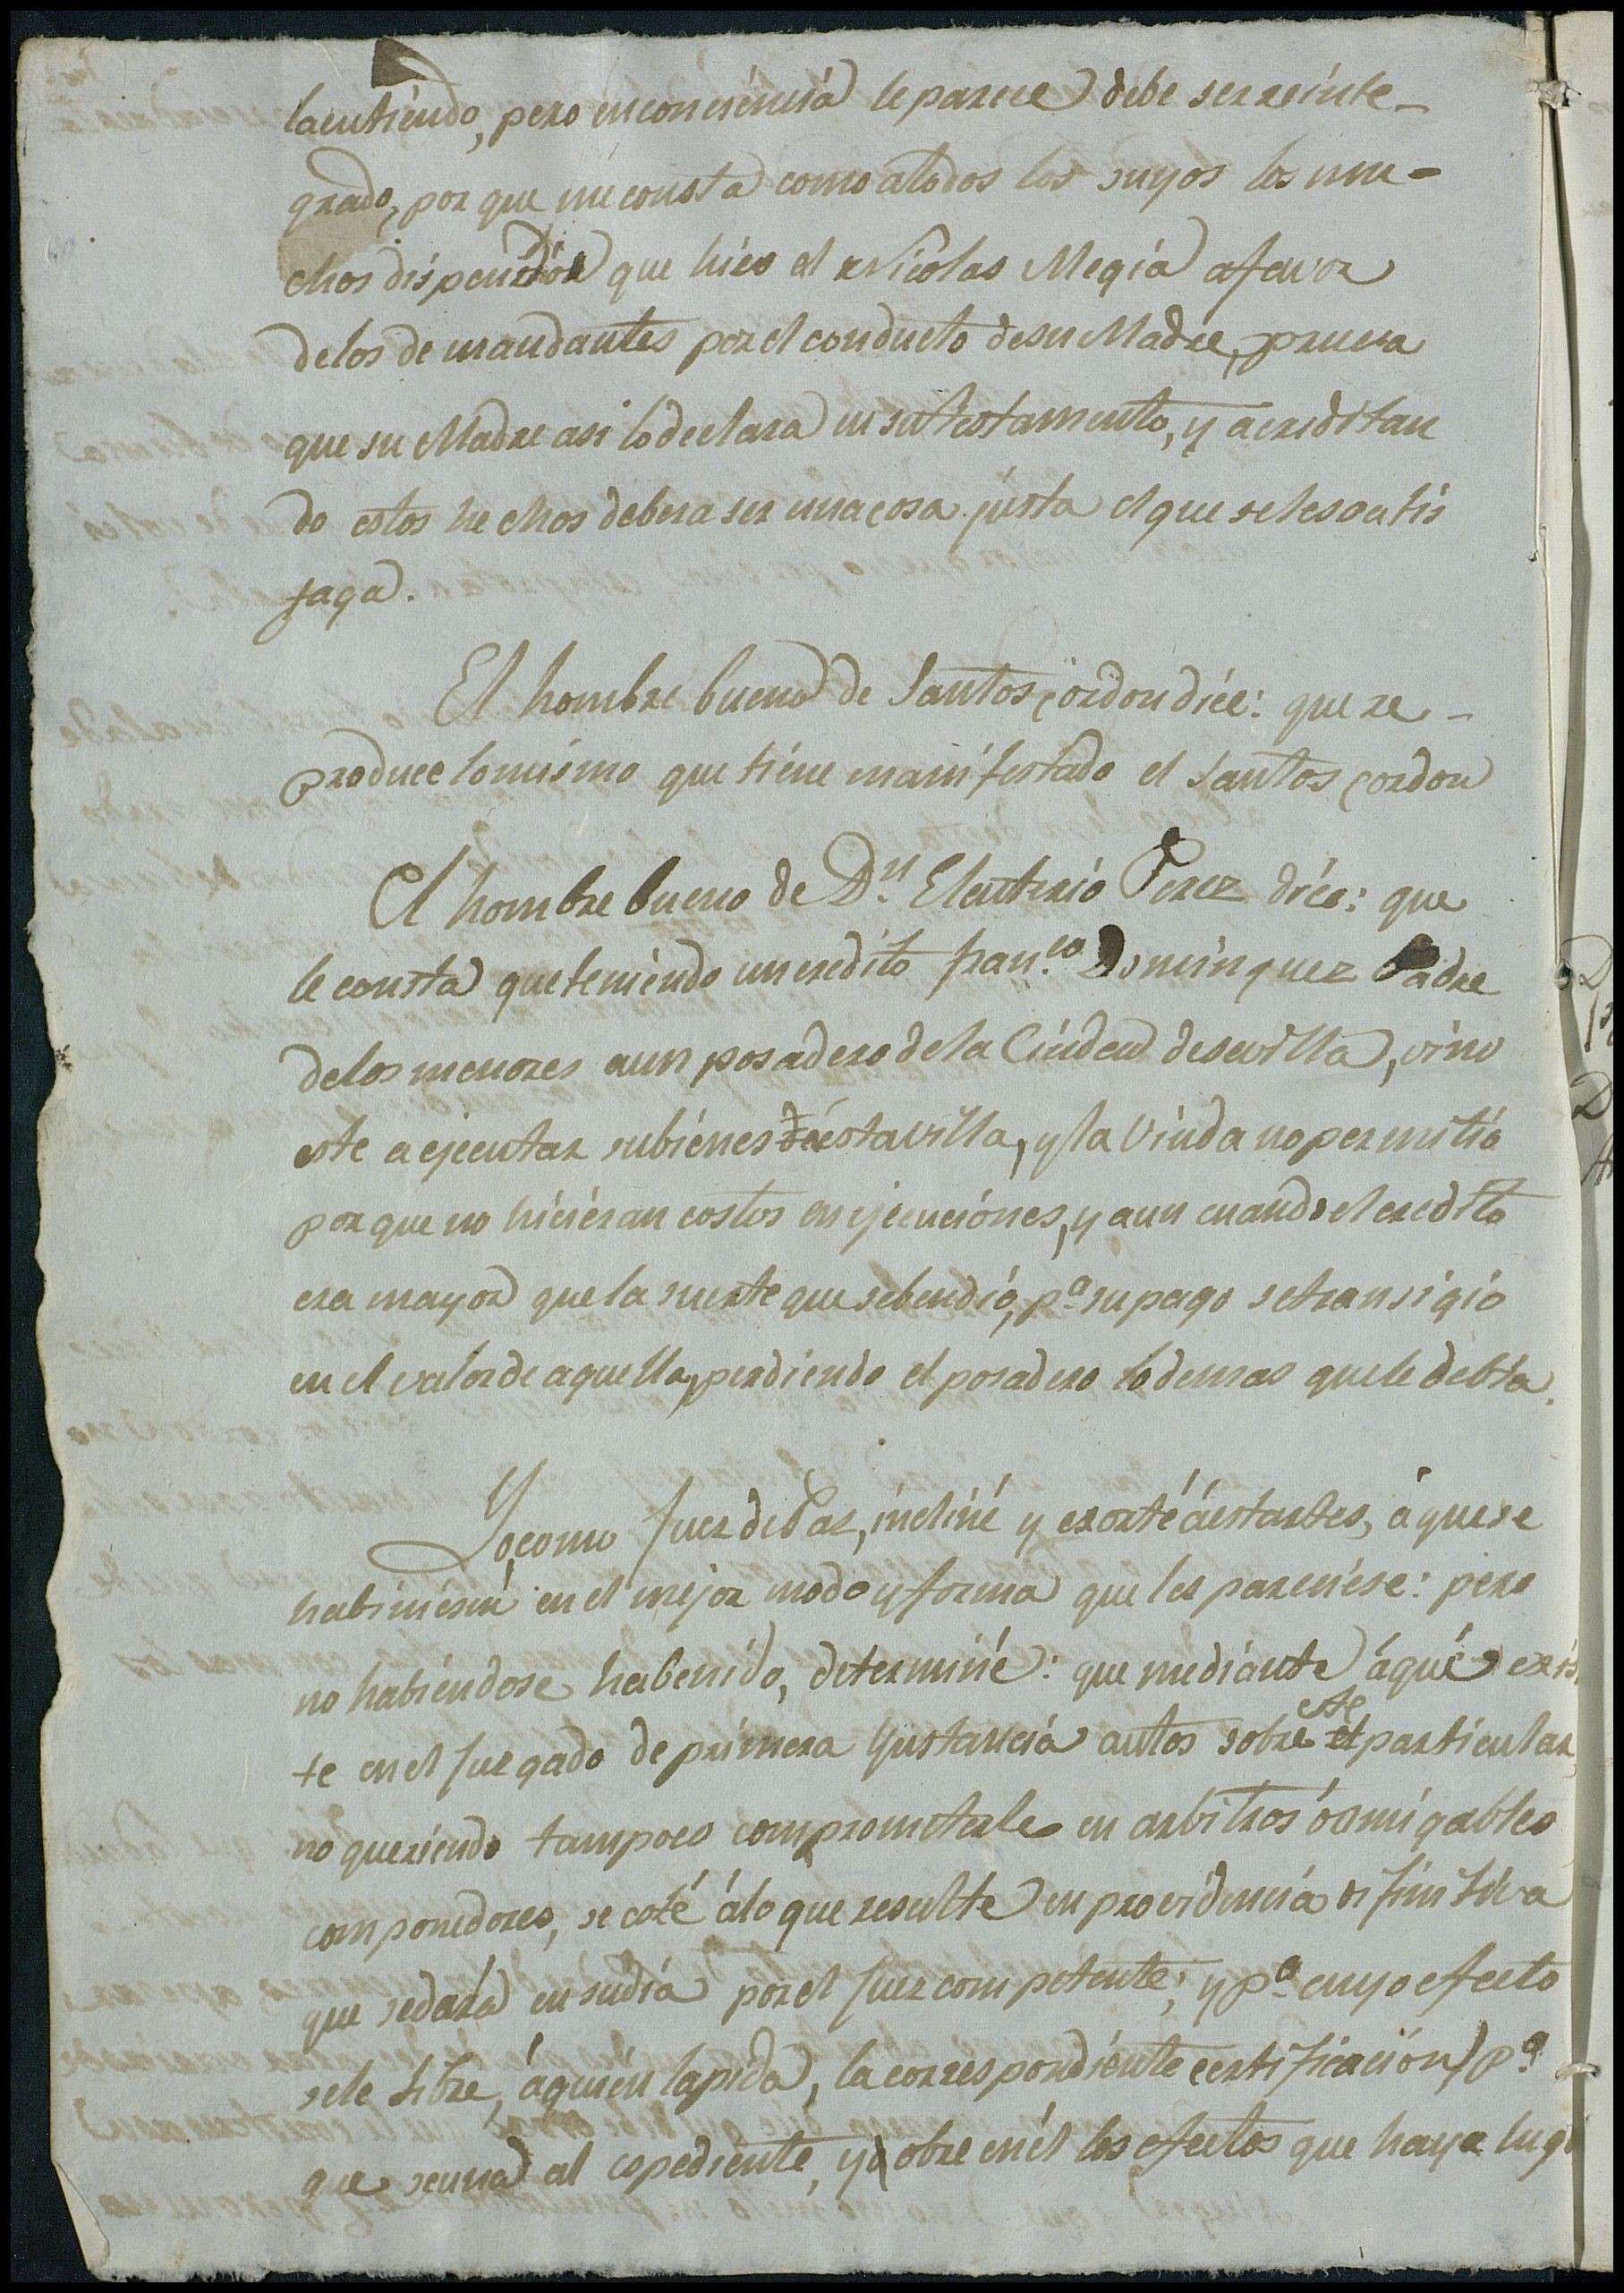 la entiendo, pero en conciencia le parece debe ser reinte-
grado, por que me consta como a todos los suyos los mu-
chos dispendios que hico el Nicolas Megia a favor
de los demandantes por el conducto de su Madre, prueva
que su Madre asi lo declara en su testamento, y acreditan
do estos hechos debera ser una cosa justa el que se le satis
faga.
El hombre bueno de Santos Cordon dice: que re-
produce lo mismo que tiene manifestado el Santos Cordon
El hombre bueno de Dn. Eleuterio Perez dice: que
le consta que teniendo un credito Franco. Dominguez Padre
de los menores a un posadero de la Ciudad de sevilla, vino
este a ejecutar su bienes de esta villa, y la Viuda no permitió
por que no hicieran costos en ejecuciones, y aun cuando el credito
era mayor que la suerte que se bendió, pa. su pago se transigió
en el valor de aquella, perdiendo el posadero lo demas que le debia.
Yo, como Juez de Paz, incliné y exorté á estartes, á que se
habiniesen en el mejor modo y forma que les pareciese: pero
no habiendose habenido, determiné: que mediante á que exis
te en el Juzgado de primera Ynstancia autos sobre este particular,
no queriendo tampoco comprometerles en arbitros ó amigables
componedores, se esté á lo que resulte en providencia difinitiva
que se dará en su dia por el Juez competente; y pa. cuyo efecto
se le libre, á quien la pida, la correspondiente certificacion pa.
que se una al espediente, y obre en él los efectos que haya lug